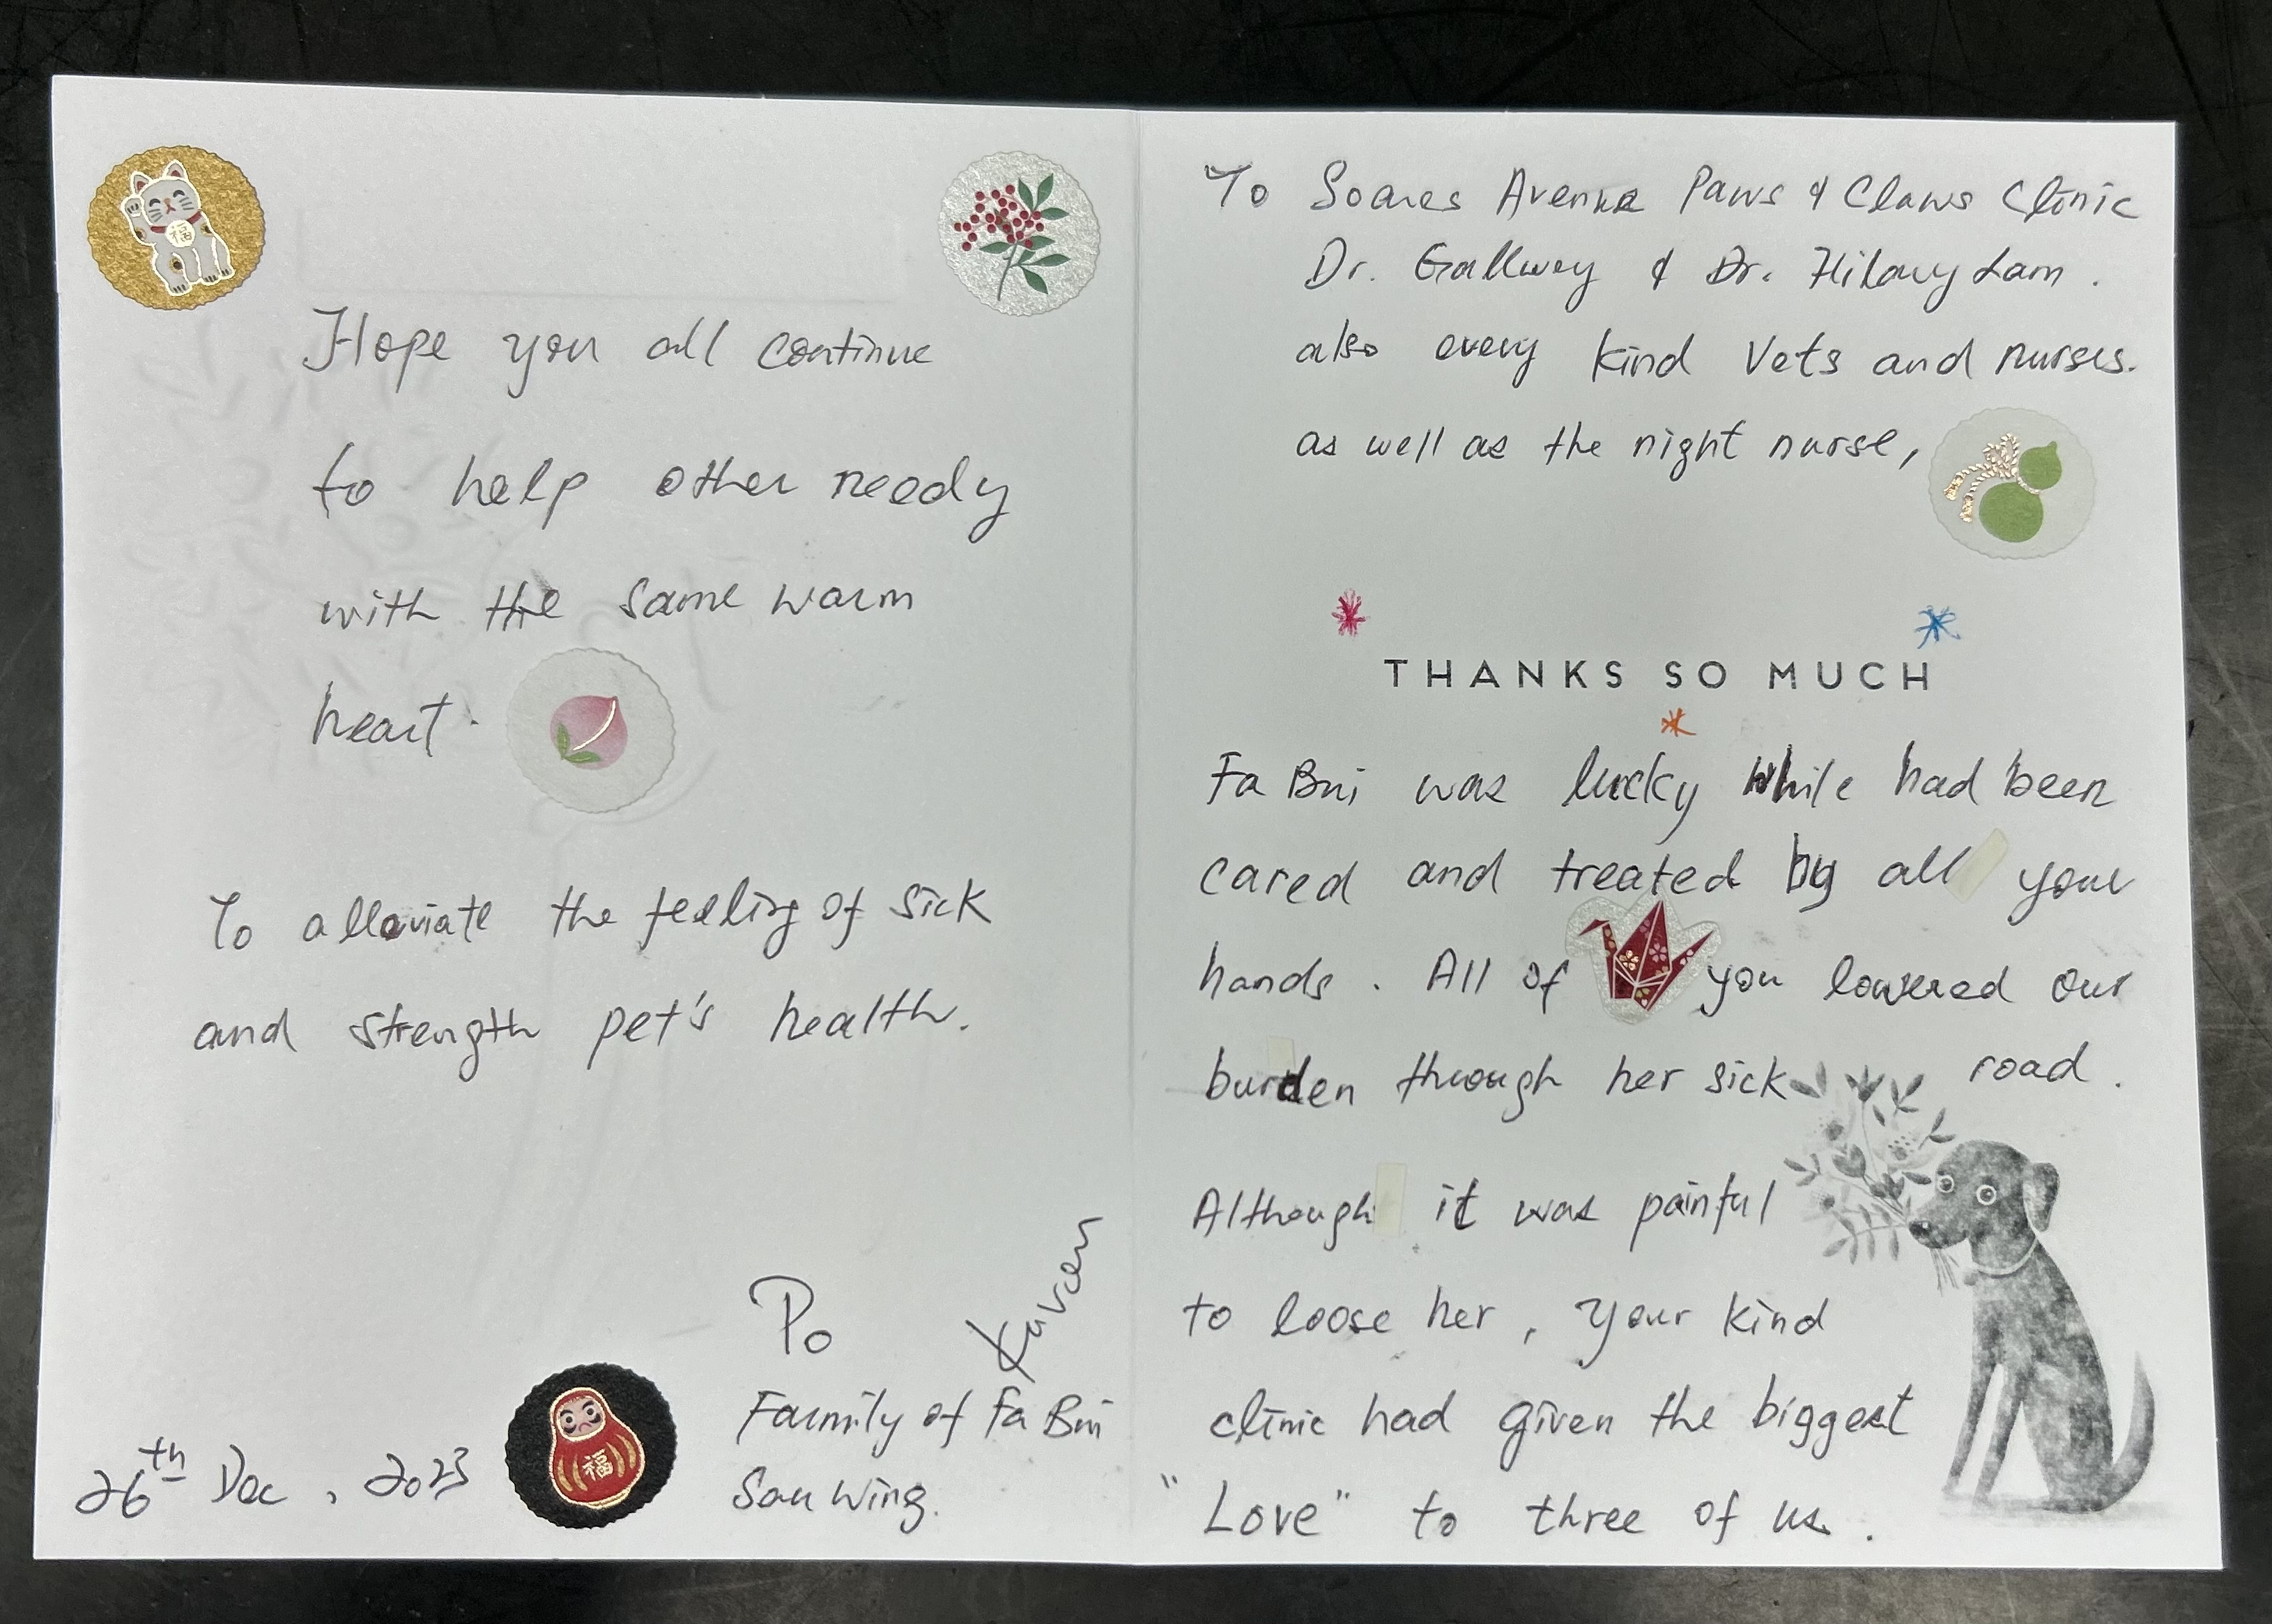 Hope you all continue
to help other needy
with the same warm
heart.
To alleviate the feeling of sick
and strength pet's health.
Po
Karen
Family of Fa Bui
Sau Wing.
26th Dec, 2023
福
福
To Soares Avenue Paws & Claws Clinic
Dr. Gallway & Dr. Hilary Lam.
also every kind Vets and nurses.
as well as the night nurse,
THANKS SO MUCH
Fa Bui was lucky while had been
cared and treated by all your
hands. All of you lowered our
burden through her sick road.
Although it was painful
to loose her, your kind
clinic had given the biggest
"Love" to three of us.